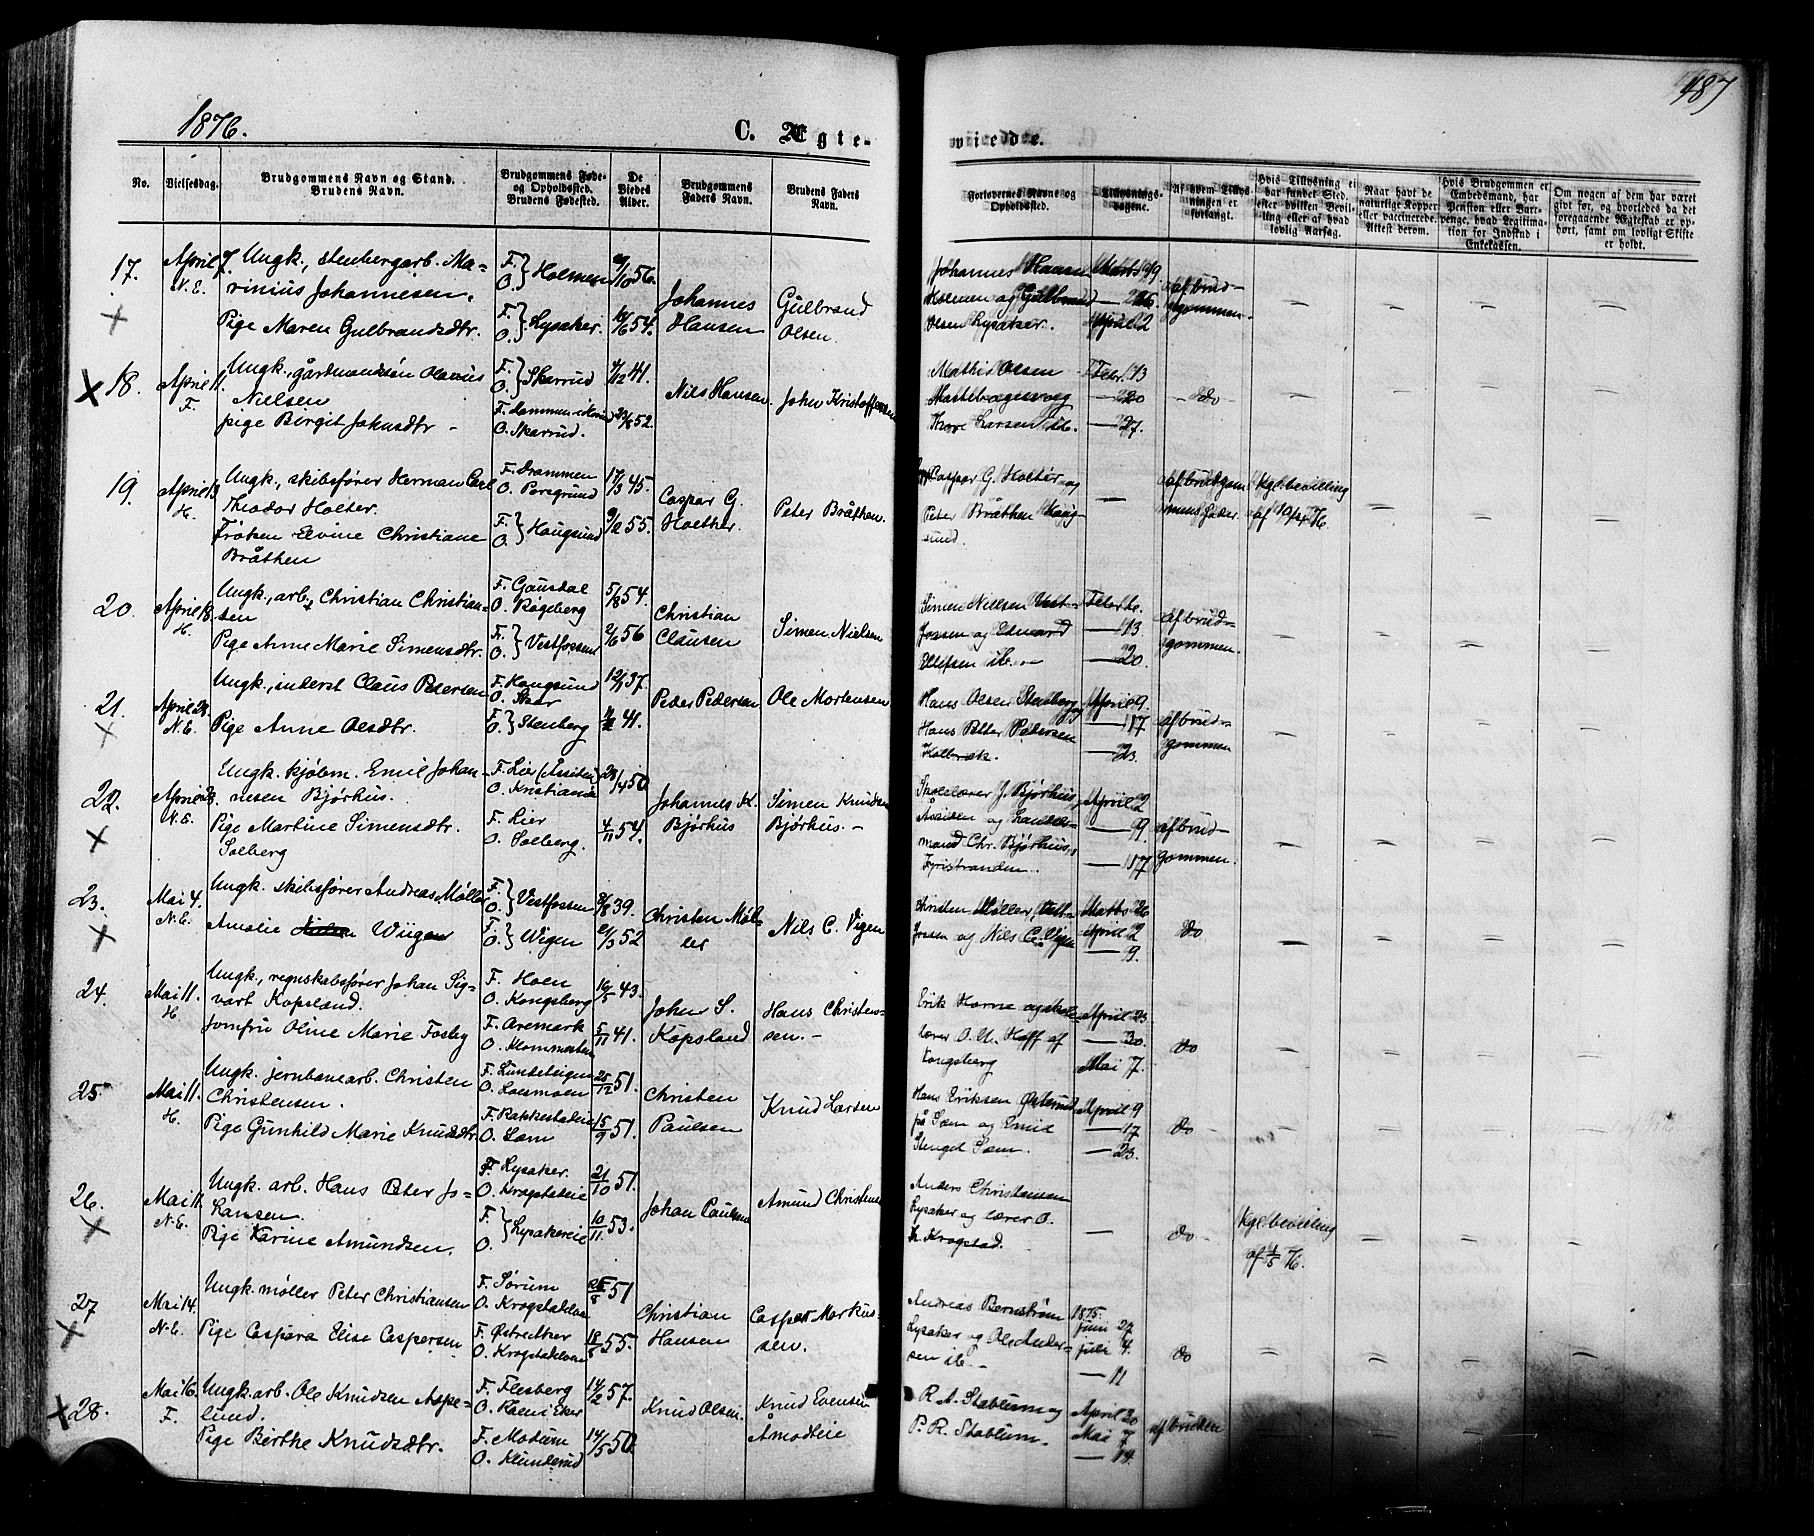 1876.
C. Ægte-
viede.
187
No.
Vielsesdag.
Brudgommens Navn og Stand.
Brudens Navn.
Brudgommens Føde- og Opholdssted.
Brudens Fødested.
De Viedes Alder.
Brudgommens Faders Navn.
Brudens Faders Navn.
Forlovernes Navne og Opholdssted.
Tillysnings-dagene.
Af hvem Tillysningen er forlangt.
Hvis Tillysning ei har fundet Sted, efter hvilken Bevilling eller af hvad lovlig Aarsag.
Naar havt de naturlige Kopper eller vaccinerede. Attest derom.
Hvis Brudgommen er Embedsmand, har Pension eller Vartpenge, hvad Legitimation for Indskud i Enkekassen.
Om nogen af dem har været gift før, og hvorledes da det foregaaende Ægteskab er ophørt, samt om lovligt Skifte er holdt.
17.
April 7.
N.E.
Ungk., stenbergarb. Ma-
rinius Johannesen.
Pige Maren Gulbrandsdtr.
F. O. } Holmen
F. O. } Lysaker.
56.
54.
Johannes
Hansen
Gulbrand
Olsen.
Johannes Hansen
Holmen og Gulbrand
Olsen Lysaker.
Marts 19.
— 26
April 2
af brud-
gommen.
18.
April 11.
F.
Ungk., gårdmandsön Olavus
Nielsen
pige Birgit Johnsdtr -
F. O. } Skarrud
O. Skarrud.
41.
52.
Nils Hansen.
John Kristoffersen
Mathis Olsen
Thore Larsen ib.
Febr. 13
— 20
— 27.
- do -
19.
April 13
H.
Ungk., skibsfører Herman Carl
Theodor Holter.
Frøken Elvine Christiane
Bråthen
F. Drammen
O. Porsgrund
F. O. } Hougsund
17/3 45.
55.
Caspar G.
Holther.
Peter Bråthen.
Caspar G. Holter og
Peter Bråthen Houg-
sund.
—
af brudgom-
mens fader.
Kgl. bevilling
af 10/4 76.
20.
April 18.
H.
Ungk., arb., Christian Christian-
sen
Pige Anne Marie Simensdtr.
F. Gausdal
O. Røgeberg
F. O. } Vestfossen
5/8 54.
2/6 56
Christian
Clausen
Simen Nielsen
Simen Nielsen Vest-
fossen og Edvard
Ellefsen ib. -
Febr. 6.
— 13
— 20.
af brud-
gommen.
21.
April 23.
N.E.
Ungk., inderst Claus Pedersen
Pige Anne Olsdtr.
F. Hougsund
F. O. } Stenberg
37.
41.
Peder Pedersen
Ole Mortensen
Hans Olsen Stenberg og
Hans Peter Pedersen
Kolbræk.
April 9.
— 17
— 23.
af brud-
gommen
22.
April 23.
N.E.
Ungk. kjøbm. Emil Johan-
nesen Bjørhus.
Pige Martine Simensdtr.
Solberg
F. Lier
O. Kristiania
F. Lier
O. Solberg.
23/4 50
4/11 54.
Johannes K.
Bjørhus
Simen Knudsen
Bjørhus. -
Skolelærer J. Bjørhus,
mand Chr. Bjørhus,
April 2
— 9.
— 17
af brud-
gommen.
23.
Mai 4.
N.E.
Ungk. skibsfører Andreas Møller
Amalie Wiigen
F. O. } Vestfossen
F. O. } Wigen
39.
52
Christen Møl-
ler
Nils C. Vigen
Christen Møller, Vest-
fossen og Nils C. Vigen
Marts 26
April 2
— 9.
do
24.
Mai 11.
H.
Ungk., regnskabsfører Johan Sig-
vart Kopsland.
Jomfru Oline Marie Fosby
F. Hoen
O. Kongsberg
F. Aremark
16/5 43.
5/11 41.
John S.
Kopsland
Hans Christen-
sen. -
Erik Horne og skole-
lærer O. N. Hoff af
Kongsberg
April 23
— 30.
Mai 7.
do
25.
Mai 11.
H.
Ungk. jernbanearb. Christen
Christensen.
Pige Gunhild Marie Knudsdtr
O. Loesmoen
O. Loesmoen
25/12 51.
15/9 51.
Christen
Paulsen
Knud Larsen
Hans Eriksen Østerud
på Sæm og Emil
Stengel Sæm.
April 9
— 17
— 23.
do -
26.
Mai 11.
N.E.
Ungk. arb. Hans Peter Jo-
hansen.
Pige Karine Amundsen.
F. Lysaker.
O. Krogstadeie
F. O. } Lysakereie
21/10 51.
10/11 53.
Johan Paulsen
Amund Christensen
Anders Christensen
Lysaker og lærer O.
H. Krogstad.
—
do -
Kgl. bevilling
af 1/5 76.
27
Mai 14.
N.E.
Ungk. møller Peter Christiansen
Pige Caspara Elise Caspersen
F. Sørum
O. Krogstadelven
O. Krogstadelven
51
18/5 55.
Christian
Hansen
Casper Markus-
sen.
Andreas Bernstrøm
Lysaker og Ole Ander-
sen ib. -
1875.
Juni 27
Juli 4.
— 11
do
28.
Mai 16.
F.
Ungk. arb. Ole Knudsen Aspe-
lund.
Pige Berthe Knudsdtr.
F. Flesberg
O. Hoen i Eker
F. Modum
O. Klunderud
14/2 57.
14/5 50.
Knud Olsen.
Knud Evensen
Åmodteie
R. A. Stablum og
P. R. Stablum.
April 20
Mai 7
— 14.
af bruden